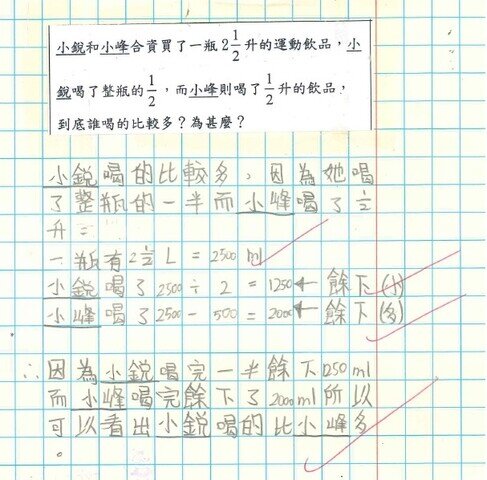 小銳和小峰合資買了一瓶 2 1/2 升的運動飲品，小
銳喝了整瓶的 1/2，而小峰則喝了 1/2 升的飲品，
到底誰喝的比較多？為甚麼？
小銳喝的比較多，因為她喝
了整瓶的一半而小峰喝了 1/2
升=
一瓶有 2 1/2 L = 2500 ml
小銳喝了 2500 ÷ 2 = 1250 ← 餘下 (少)
小峰喝了 2500 - 500 = 2000 ← 餘下 (多)
∴ 因為小銳喝完一半餘下 1250 ml
而小峰喝完餘下了 2000 ml 所以
可以看出小銳喝的比小峰多
。